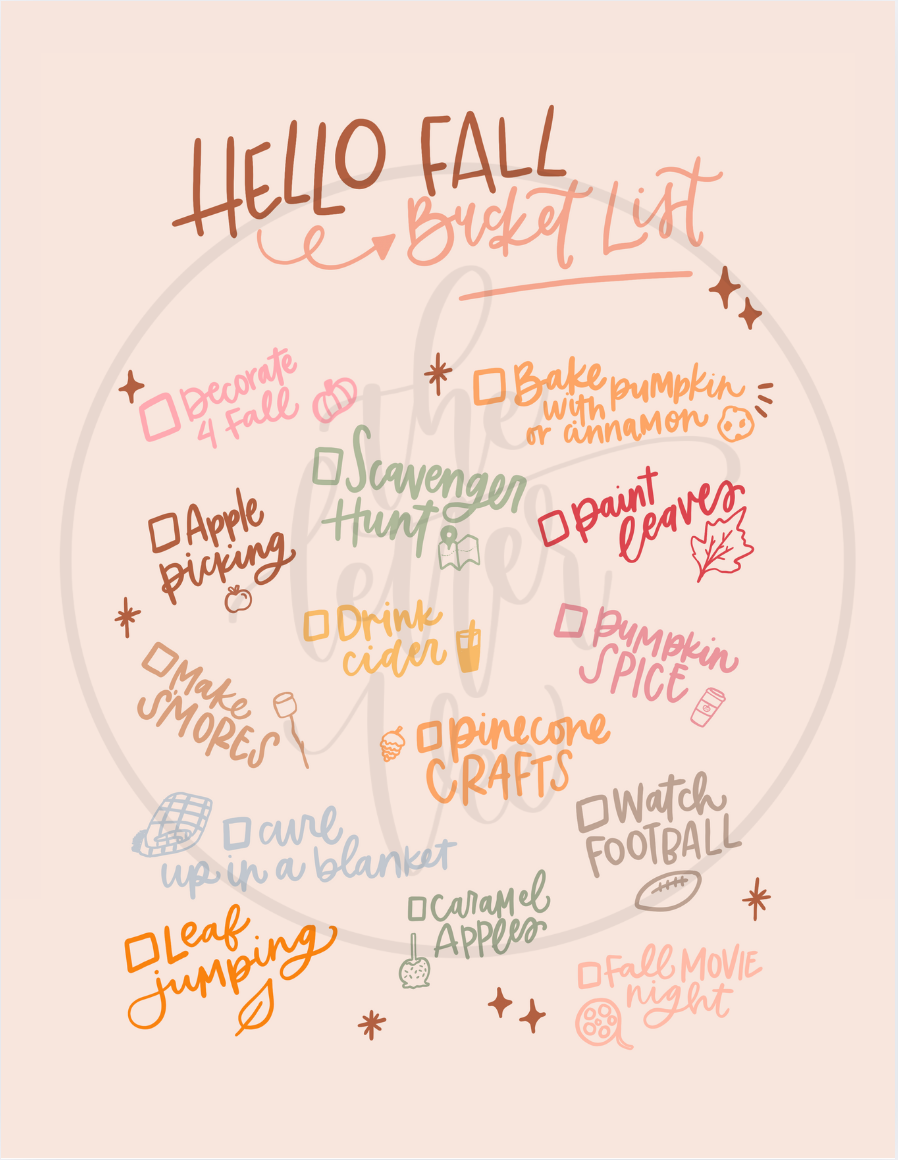 HELLO FALL
Bucket List
Decorate
4 Fall
Bake pumpkin
with
or cinnamon
Scavenger
Hunt
Apple
picking
paint
leaves
Drink
cider
Pumpkin
SPICE
Make
S'MORES
pinecone
CRAFTS
Watch
FOOTBALL
curl
up in a blanket
Caramel
Apples
Leaf
jumping
Fall MOVIE
night
the
letter
lee